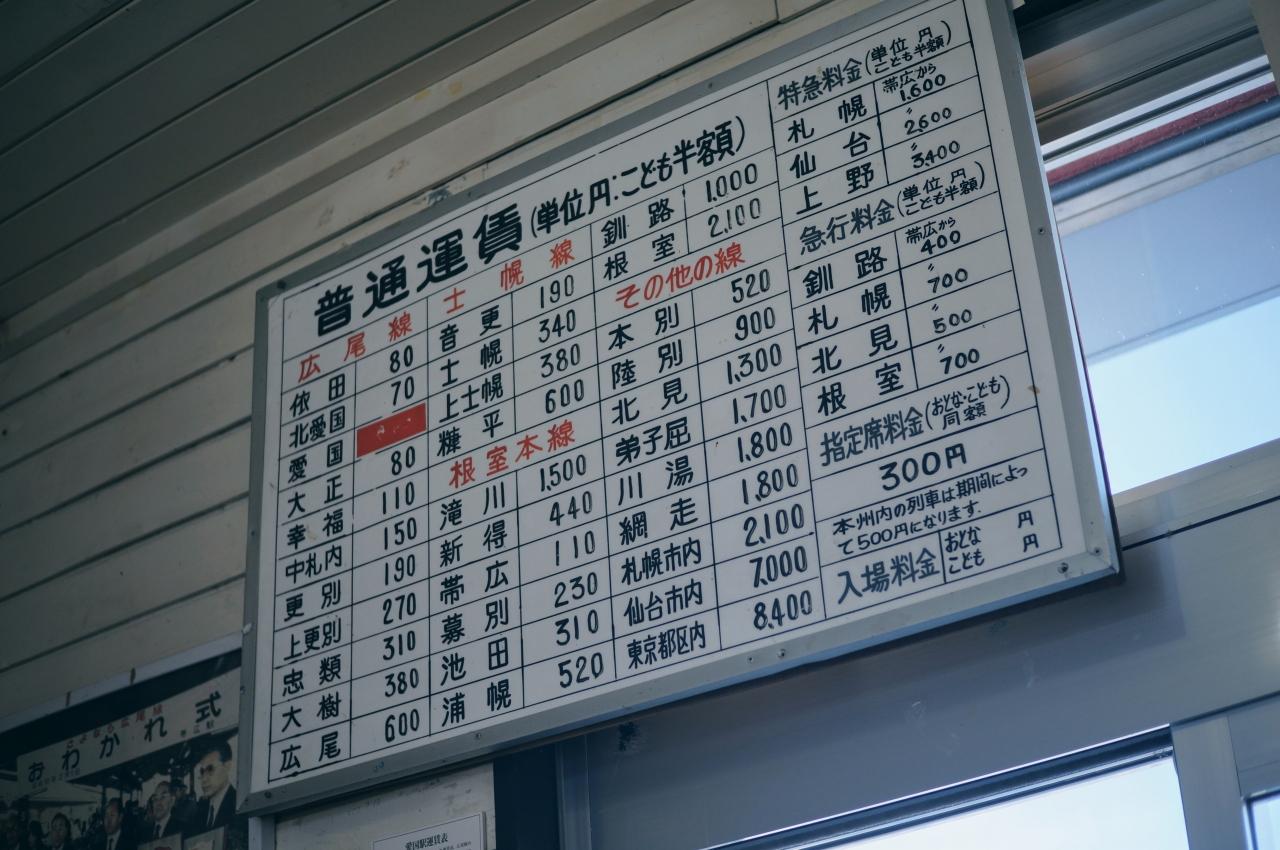 普通運賃(単位円:こども半額)
広尾線
依田 80
北愛国 70
愛国
大正 80
幸福 110
中札内 150
更別 190
上更別 270
忠類 310
大樹 380
広尾 600
士幌線
音更 190
士幌 340
上士幌 380
糠平 600
根室本線
滝川 1,500
新得 440
帯広 110
幕別 230
池田 310
浦幌 520
釧路 1,000
根室 2,100
その他の線
本別 520
陸別 900
北見 1,300
弟子屈 1,700
川湯 1,800
網走 1,800
札幌市内 2,100
仙台市内 7,000
東京都区内 8,400
特急料金(単位円こども半額)
札幌 帯広から1,600
仙台 〃2,600
上野 〃3,400
急行料金(単位円こども半額)
釧路 帯広から400
札幌 〃700
北見 〃500
根室 〃700
指定席料金(おとな・こども同額)
300円
本州内の列車は期間によっ
て500円になります.
入場料金 おとな 円
こども 円
さよなら広尾線
おわかれ式
愛国駅運賃表